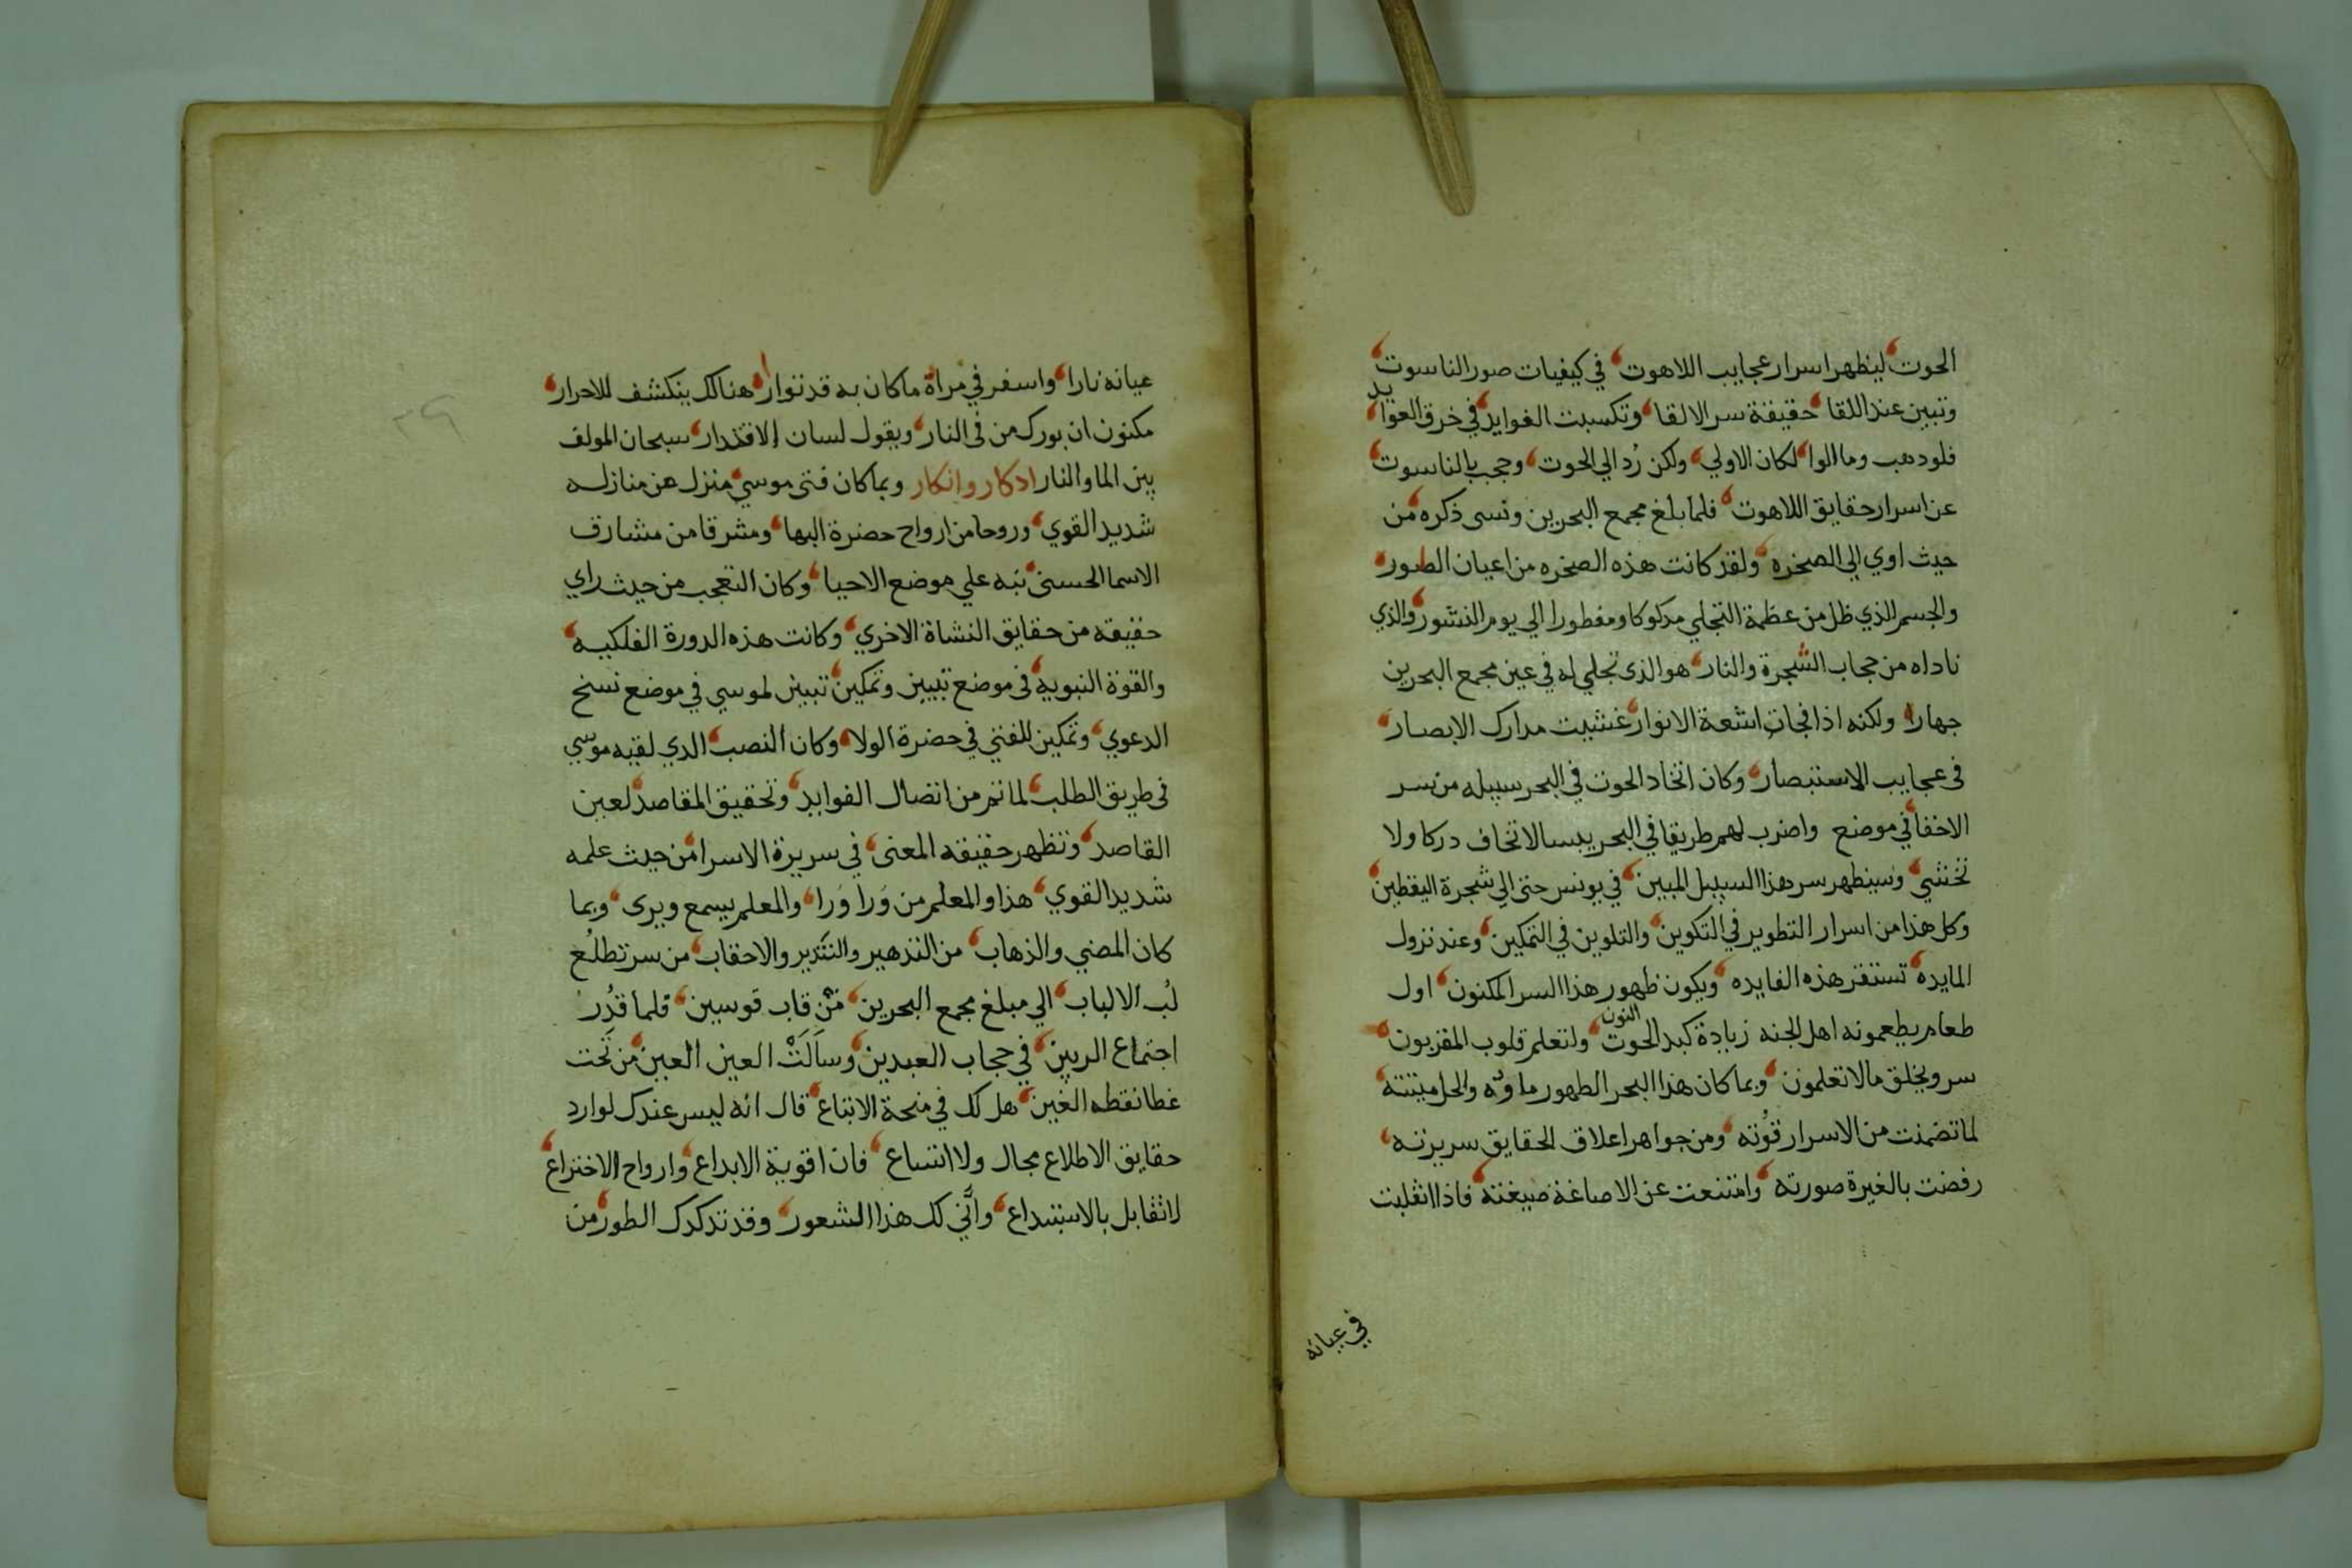 الحوت، ليظهر اسرار عجايب اللاهوت، في كيفيات صور الناسوت،
وتبين عند اللقا، حقيقة سر الالقا، وتكسبت الفوايد، في خرق العوايد،
فلو دهب وما الوا، لكان الاولي، ولكن رُد الي الحوت، وحجب بالناسوت،
عن اسرار حقايق اللاهوت، فلما بلغ مجمع البحرين ونسى ذكره، من
حيث اوي الي الصخره، ولقد كانت هذه الصخره من اعيان الطور،
والجسم الذي ظل من عظمة التجلي مدكوكا ومفطورا الي يوم النشور، والذي
ناداه من حجاب الشجرة والنار، هو الذي تجلي له في عين مجمع البحرين
جهارا، ولكنه اذا فجات اشعة الانوار، غشيت مدارك الابصار،
في عجايب الاستبصار، وكان اتخاد الحوت في البحر سبيله من سر
الاخفا، في موضع واضرب لهم طريقا في البحر يبسا لا تخاف دركا ولا
تخشي، وسيظهر سر هذا السبيل المبين، في يونس حتى الي شجرة اليقطين،
وكل هذا من اسرار التطوير في التكوين، والتلوين في التمكين، وعند نزول
المايده، تستقر هذه الفايده، ويكون ظهور هذا السر المكنون، اول
طعام يطعمونه اهل الجنه زيادة كبد الحوت النون، ولتعلم قلوب المقربون،
سر ويخلق ما لا تعلمون، وبما كان هذا البحر الطهور ماوه والحل ميتته،
لما تضمنت من الاسرار قوُته، ومن جواهر اعلاق الحقايق سريرته،
رفضت بالغيرة صورته، وامتنعت عن الاصاغة صيغته، فاذا انقلبت
في عيانه
عيانه نارا، واسفر في مراة ما كان به قد توارا، هنالك ينكشف للاحرار،
مكنون ان بورك من في النار، ويقول لسان الاقتدار، سبحان المولف
بين الما والنار ادكار وانكار وبما كان فتى موسي، منزل عن منازله
شديد القوي، وروحا من ارواح حضرة البها، ومشرقا من مشارق
الاسما الحسنى، نبه علي موضع الاحيا، وكان التعجب من حيث راي
حقيقه من حقايق النشاة الاخري، وكانت هذه الدورة الفلكيه،
والقوة النبويه، في موضع تبيين وتمكين، تبيين لموسي في موضع نسخ
الدعوي، وتمكين للفتي في حضرة الولا، وكان النصب، الدي لقيه موسي
في طريق الطلب، لما تم من اتصال الفوايد، وتحقيق المقاصد، لعين
القاصد، وتظهر حقيقه المعنى، في سريرة الاسرا، من حيث علمه
شديد القوي، هذا والمعلم من وَرا وَرا، والمعلم يسمع ويرى، وبما
كان المضي والذهاب، من التدهير والتدبر والاحقاب، من سر تطلُع
لُب الالباب، الي مبلغ مجمع البحرين، من قاب قوسين، فلما قُدِر
اجتماع الربين، في حجاب العبدين، وسَالَتْ العين العين، من تَحت
غطا نقطه الغين، هل لك في منحة الاتباع، قال انه ليس عندك لوارد
حقايق الاطلاع مجال ولا اتساع، فان اقوية الابداع، وارواح الاختراع،
لا تقابل بالاستبداع، وأنّي لك هذا الشعور، وقد تدكدك الطور، من